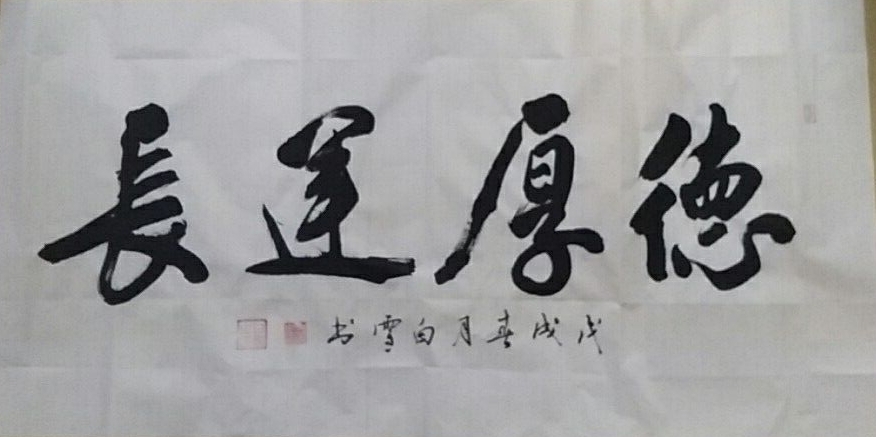 德厚運長
戊戌春月白雪书